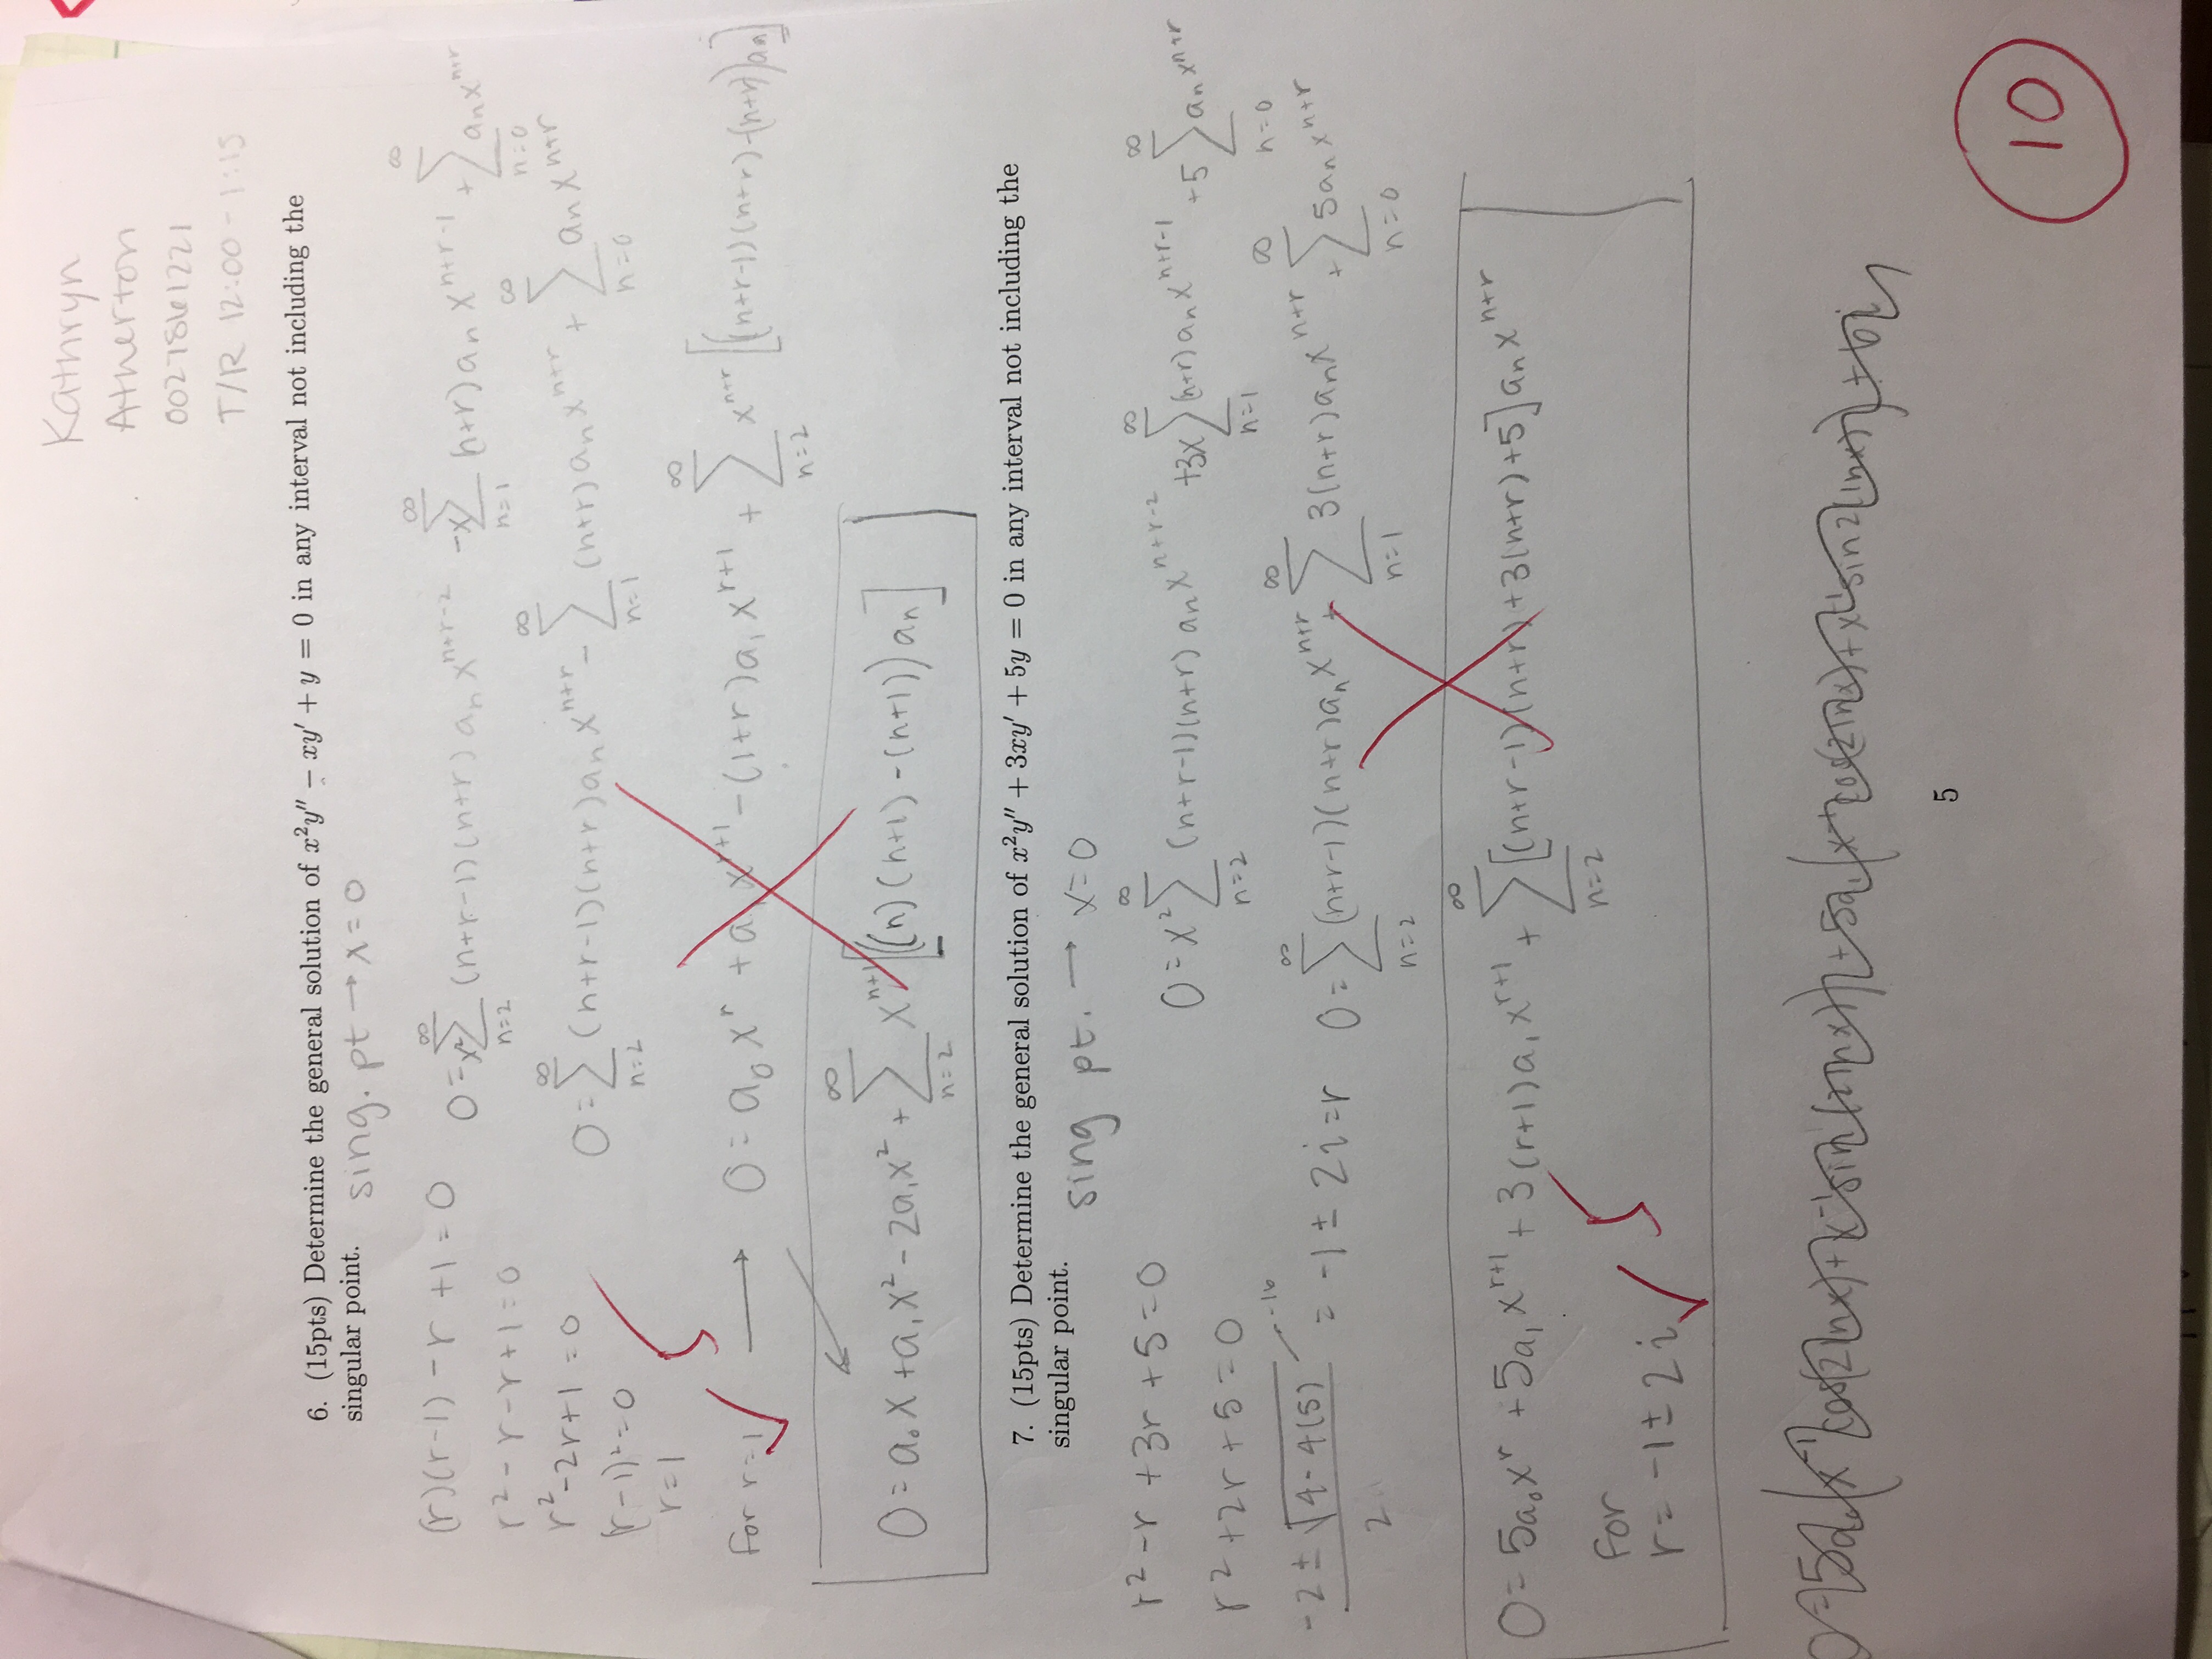 Kathryn
Atherton
0027861221
T/R 12:00 - 1:15
6. (15pts) Determine the general solution of x²y″ − xy′ + y = 0 in any interval not including the
singular point. sing. pt → x = 0
(r)(r-1) - r + 1 = 0
0 = x² ∑_{n=2}^{∞} (n+r-1)(n+r) a_n x^{n+r-2} - x ∑_{n=1}^{∞} (n+r) a_n x^{n+r-1} + ∑_{n=0}^{∞} a_n x^{n+r}
r² - r - r + 1 = 0
r² - 2r + 1 = 0
0 = ∑_{n=2}^{∞} (n+r-1)(n+r) a_n x^{n+r} - ∑_{n=1}^{∞} (n+r) a_n x^{n+r} + ∑_{n=0}^{∞} a_n x^{n+r}
(r-1)² = 0
r = 1
5
For r = 1 → 0 = a₀ x^r + a₁ x^{r+1} - (1+r) a₁ x^{r+1} + ∑_{n=2}^{∞} x^{n+r} [((n+r-1)(n+r) - (n+r)) a_n]
0 = a₀ x + a₁ x² - 2a₁ x² + ∑_{n=2}^{∞} x^{n+1} [((n)(n+1) - (n+1)) a_n]
7. (15pts) Determine the general solution of x²y″ + 3xy′ + 5y = 0 in any interval not including the
singular point. sing pt. → x = 0
r² - r + 3r + 5 = 0
0 = x² ∑_{n=2}^{∞} (n+r-1)(n+r) a_n x^{n+r-2} + 3x ∑_{n=1}^{∞} (n+r) a_n x^{n+r-1} + 5 ∑_{n=0}^{∞} a_n x^{n+r}
r² + 2r + 5 = 0
-16
(-2 ± √(4 - 4(5))) / 2 = -1 ± 2i = r
0 = ∑_{n=2}^{∞} (n+r-1)(n+r) a_n x^{n+r} + ∑_{n=1}^{∞} 3(n+r) a_n x^{n+r} + ∑_{n=0}^{∞} 5a_n x^{n+r}
0 = 5a₀ x^r + 5a₁ x^{r+1} + 3(r+1) a₁ x^{r+1} + ∑_{n=2}^{∞} [(n+r-1)(n+r) + 3(n+r) + 5] a_n x^{n+r}
For
r = -1 ± 2i
5
5
10